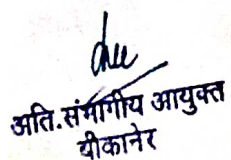 अति.संभागीय आयुक्त
बीकानेर